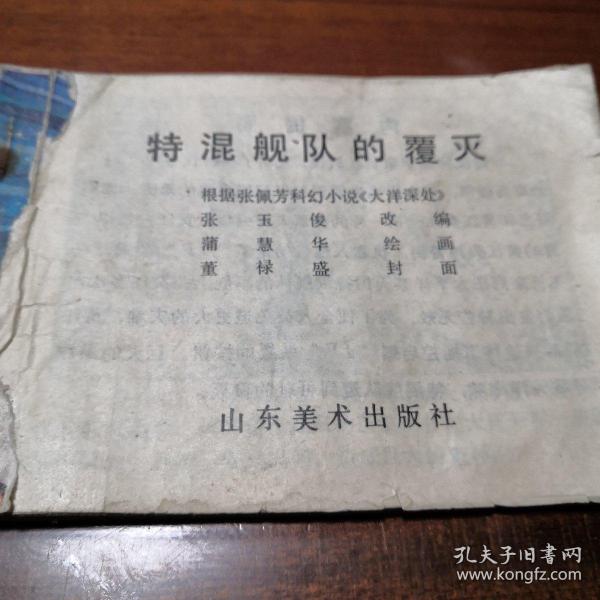 特混舰队的覆灭
根据张佩芳科幻小说《大洋深处》
张玉俊 改编
蒲慧华 绘画
董禄盛 封面
山东美术出版社
孔夫子旧书网
www.kongfz.com